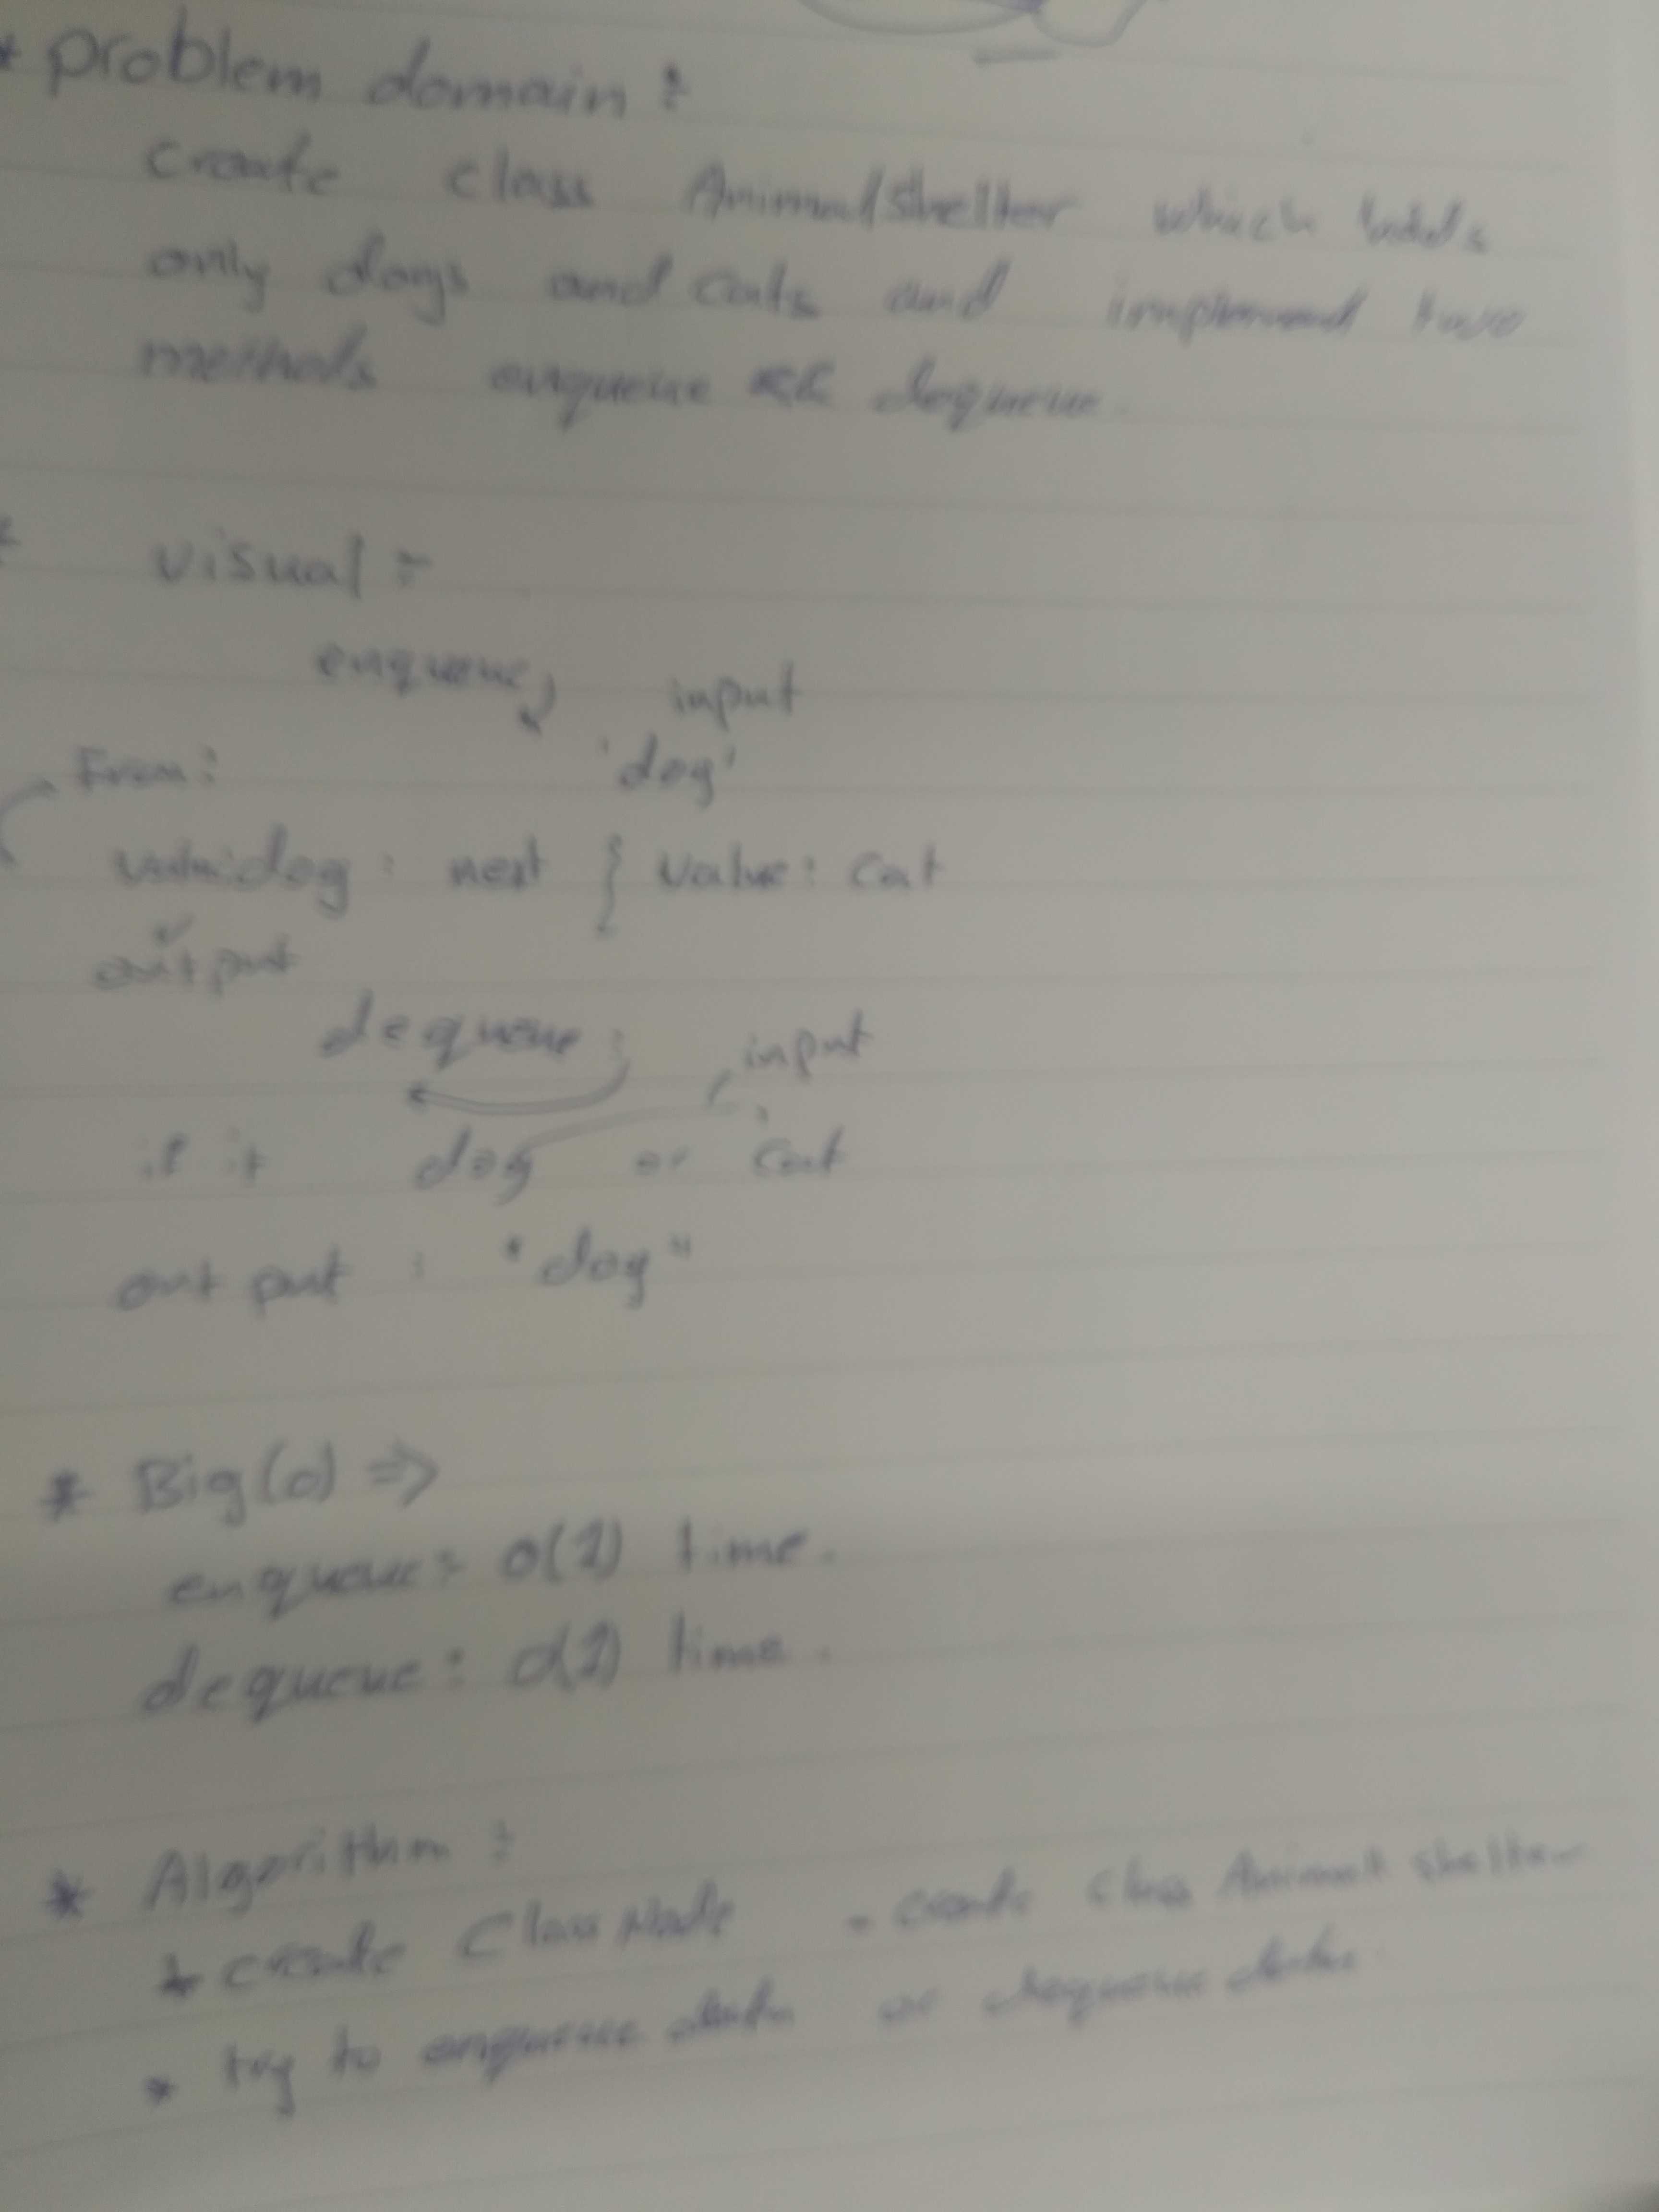 * problem domain :
create class AnimalShelter which holds
only dogs and cats and implement two
methods enqueue && dequeue.
* visual :
enqueue input
'dog'
value: dog : next } value: cat
output
dequeue : input
if it dog or cat
out put : "dog"
* Big(o) =>
enqueue : o(1) time.
dequeue : o(1) time.
* Algorithm :
* create Class Node - create class Animal shelter
* try to enqueue data or dequeue data